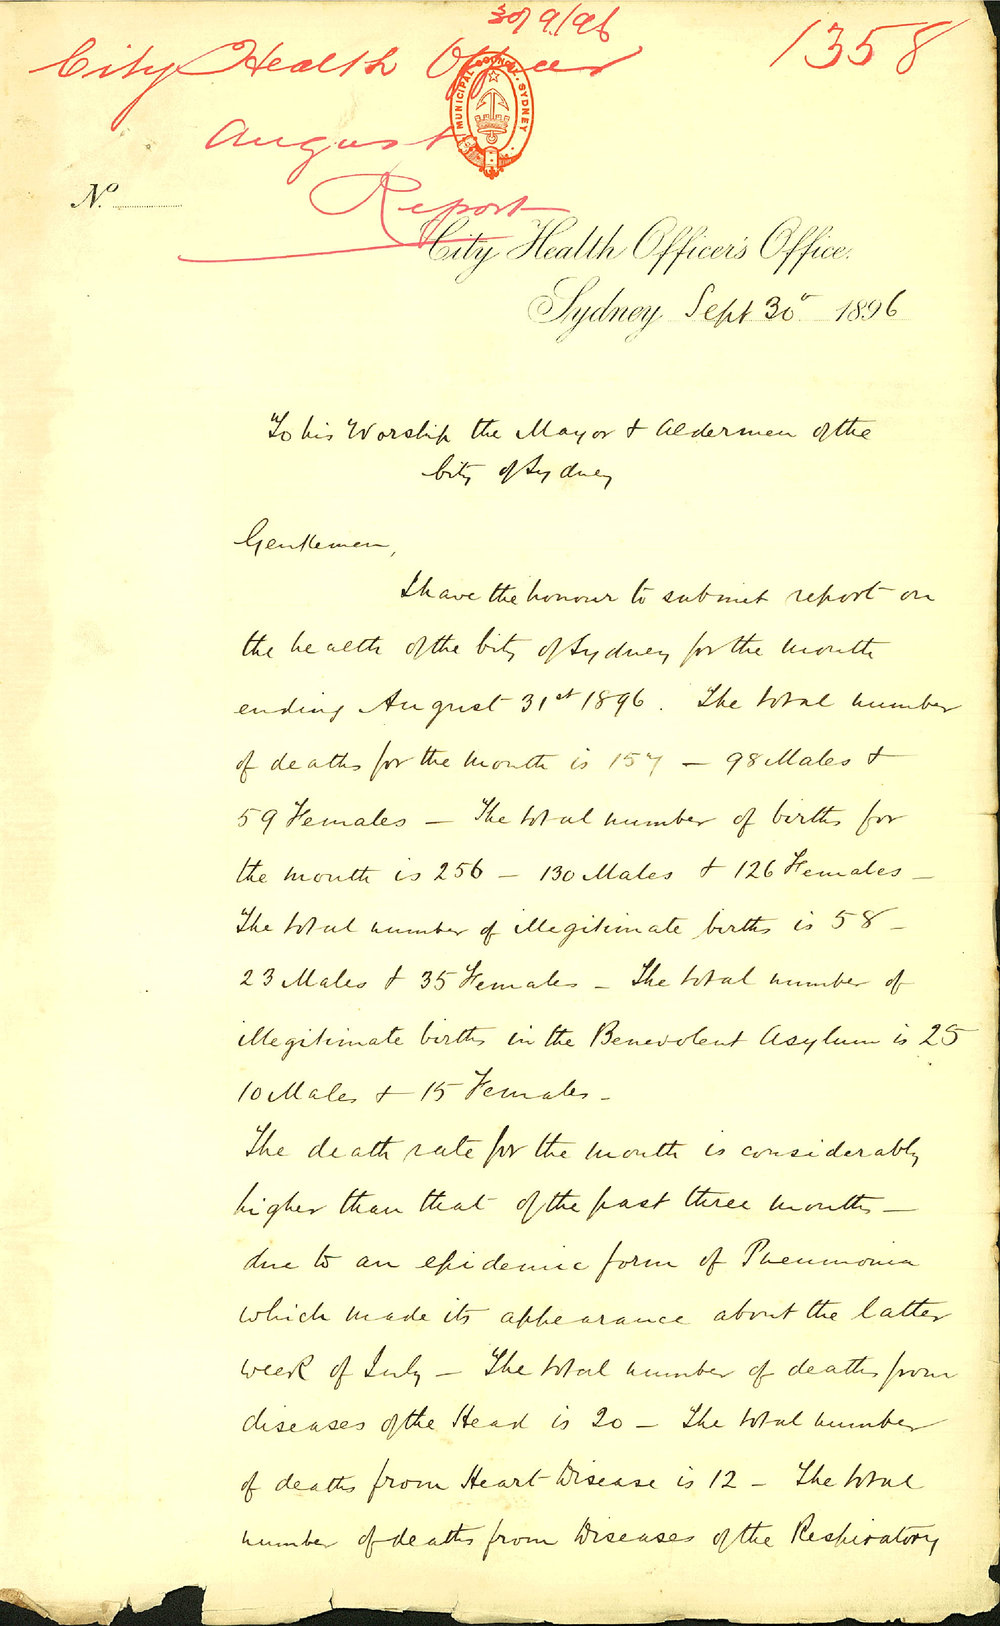 30/9/96
1358
City Health Officer
MUNICIPAL COUNCIL, SYDNEY
August
Report
No.
City Health Officer's Office.
Sydney, Sept 30th 1896
To his Worship the Mayor & Aldermen of the
City of Sydney
Gentlemen,
I have the honour to submit report on
the health of the City of Sydney for the month
ending August 31st 1896. The total number
of deaths for the month is 157 – 98 Males &
59 Females – The total number of births for
the month is 256 – 130 Males & 126 Females –
The total number of illegitimate births is 58 –
23 Males & 35 Females – The total number of
illegitimate births in the Benevolent Asylum is 25
10 Males & 15 Females –
The death rate for the month is considerably
higher than that of the past three months –
due to an epidemic form of Pneumonia
which made its appearance about the latter
week of July – The total number of deaths from
diseases of the Head is 20 – The total number
of deaths from Heart Disease is 12 – The total
number of deaths from Diseases of the Respiratory